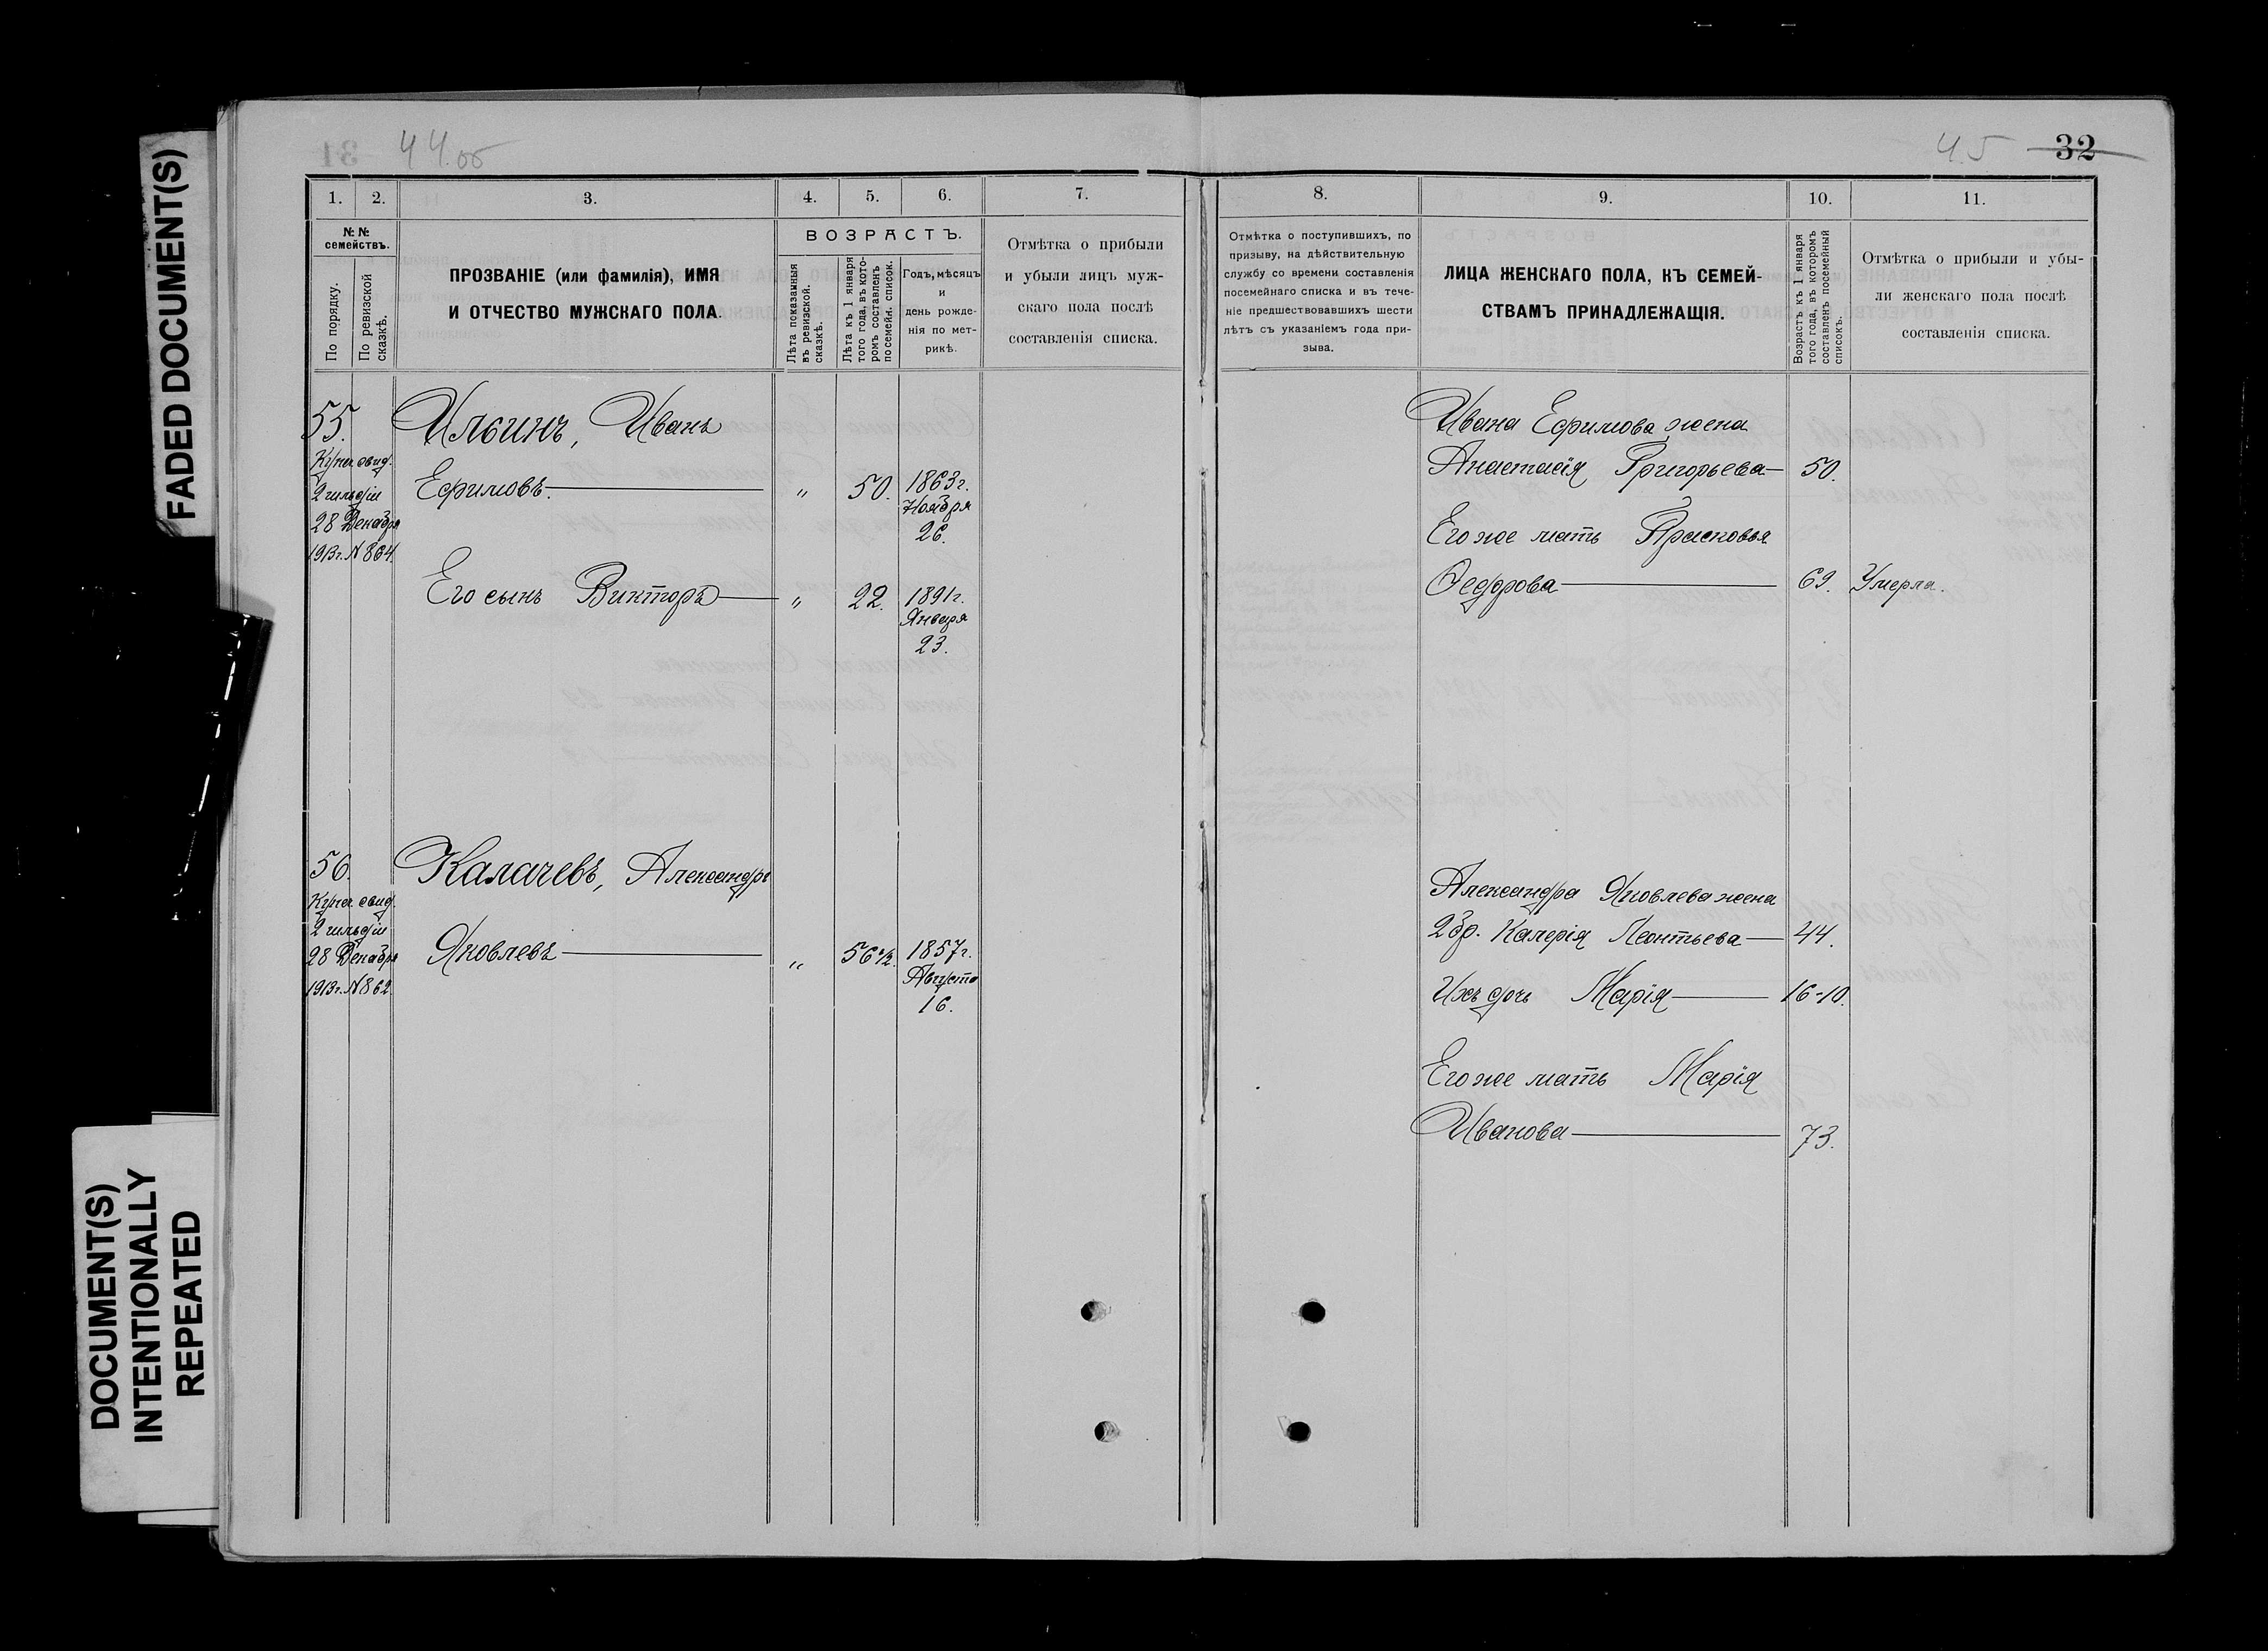 FADED DOCUMENT(S)
DOCUMENT(S)
INTENTIONALLY
REPEATED
44 об
1. 2. 3. 4. 5. 6. 7.
№ №
семействъ.
По порядку.
По ревизской
сказкѣ.
ПРОЗВАНІЕ (или фамилія), ИМЯ
И ОТЧЕСТВО МУЖСКАГО ПОЛА.
ВОЗРАСТЪ.
Лѣта показанныя
въ ревизской.
сказкѣ.
Лѣта къ 1 января
того года, въ кото-
ромъ составленъ
посемейн. список.
Годъ, мѣсяцъ
и
день рожде-
нія по мет-
рикѣ.
Отмѣтка о прибыли
и убыли лицъ муж-
скаго пола послѣ
составленія списка.
55. Ильинъ, Иванъ
Купеч. свид.
2 гильдіи Ефимовъ. " 50. 1863 г.
Ноября
28 Декабря 26.
1913 г. № 864.
Его сынъ Викторъ " 22. 1891 г.
Января
23.
56. Калачевъ, Александръ
Купеч. свид.
2 гильдіи
28 Декабря Яковлевъ " 56 1857 г.
Августа
1913 г. № 862. 16.
45 32
8. 9. 10. 11.
Отмѣтка о поступившихъ, по
призыву, на дѣйствительную
службу со времени составленія
посемейнаго списка и въ тече-
ніе предшествовавшихъ шести
лѣтъ съ указаніемъ года при-
зыва.
ЛИЦА ЖЕНСКАГО ПОЛА, КЪ СЕМЕЙ-
СТВАМЪ ПРИНАДЛЕЖАЩІЯ.
Возрастъ къ 1 января
того года, въ которомъ
составленъ посемейный
списокъ.
Отмѣтка о прибыли и убы-
ли женскаго пола послѣ
составленія списка.
Ивана Ефимова жена
Анастасія Григорьева 50.
Его же мать Прасковья
Ѳедорова 69. Умерла.
Александра Яковлева жена
2 бр. Калерія Леонтьева 44.
Ихъ дочь Марія 16-10.
Его же мать Марія
Иванова 73.